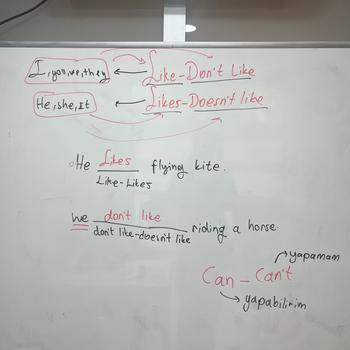 I, you, we, they ← Like - Don't Like
He, she, it ← Likes - Doesn't like
He Likes flying kite.
Like - Likes
we don't like riding a horse.
don't like - doesn't like
yapamam
Can - Can't
yapabilirim